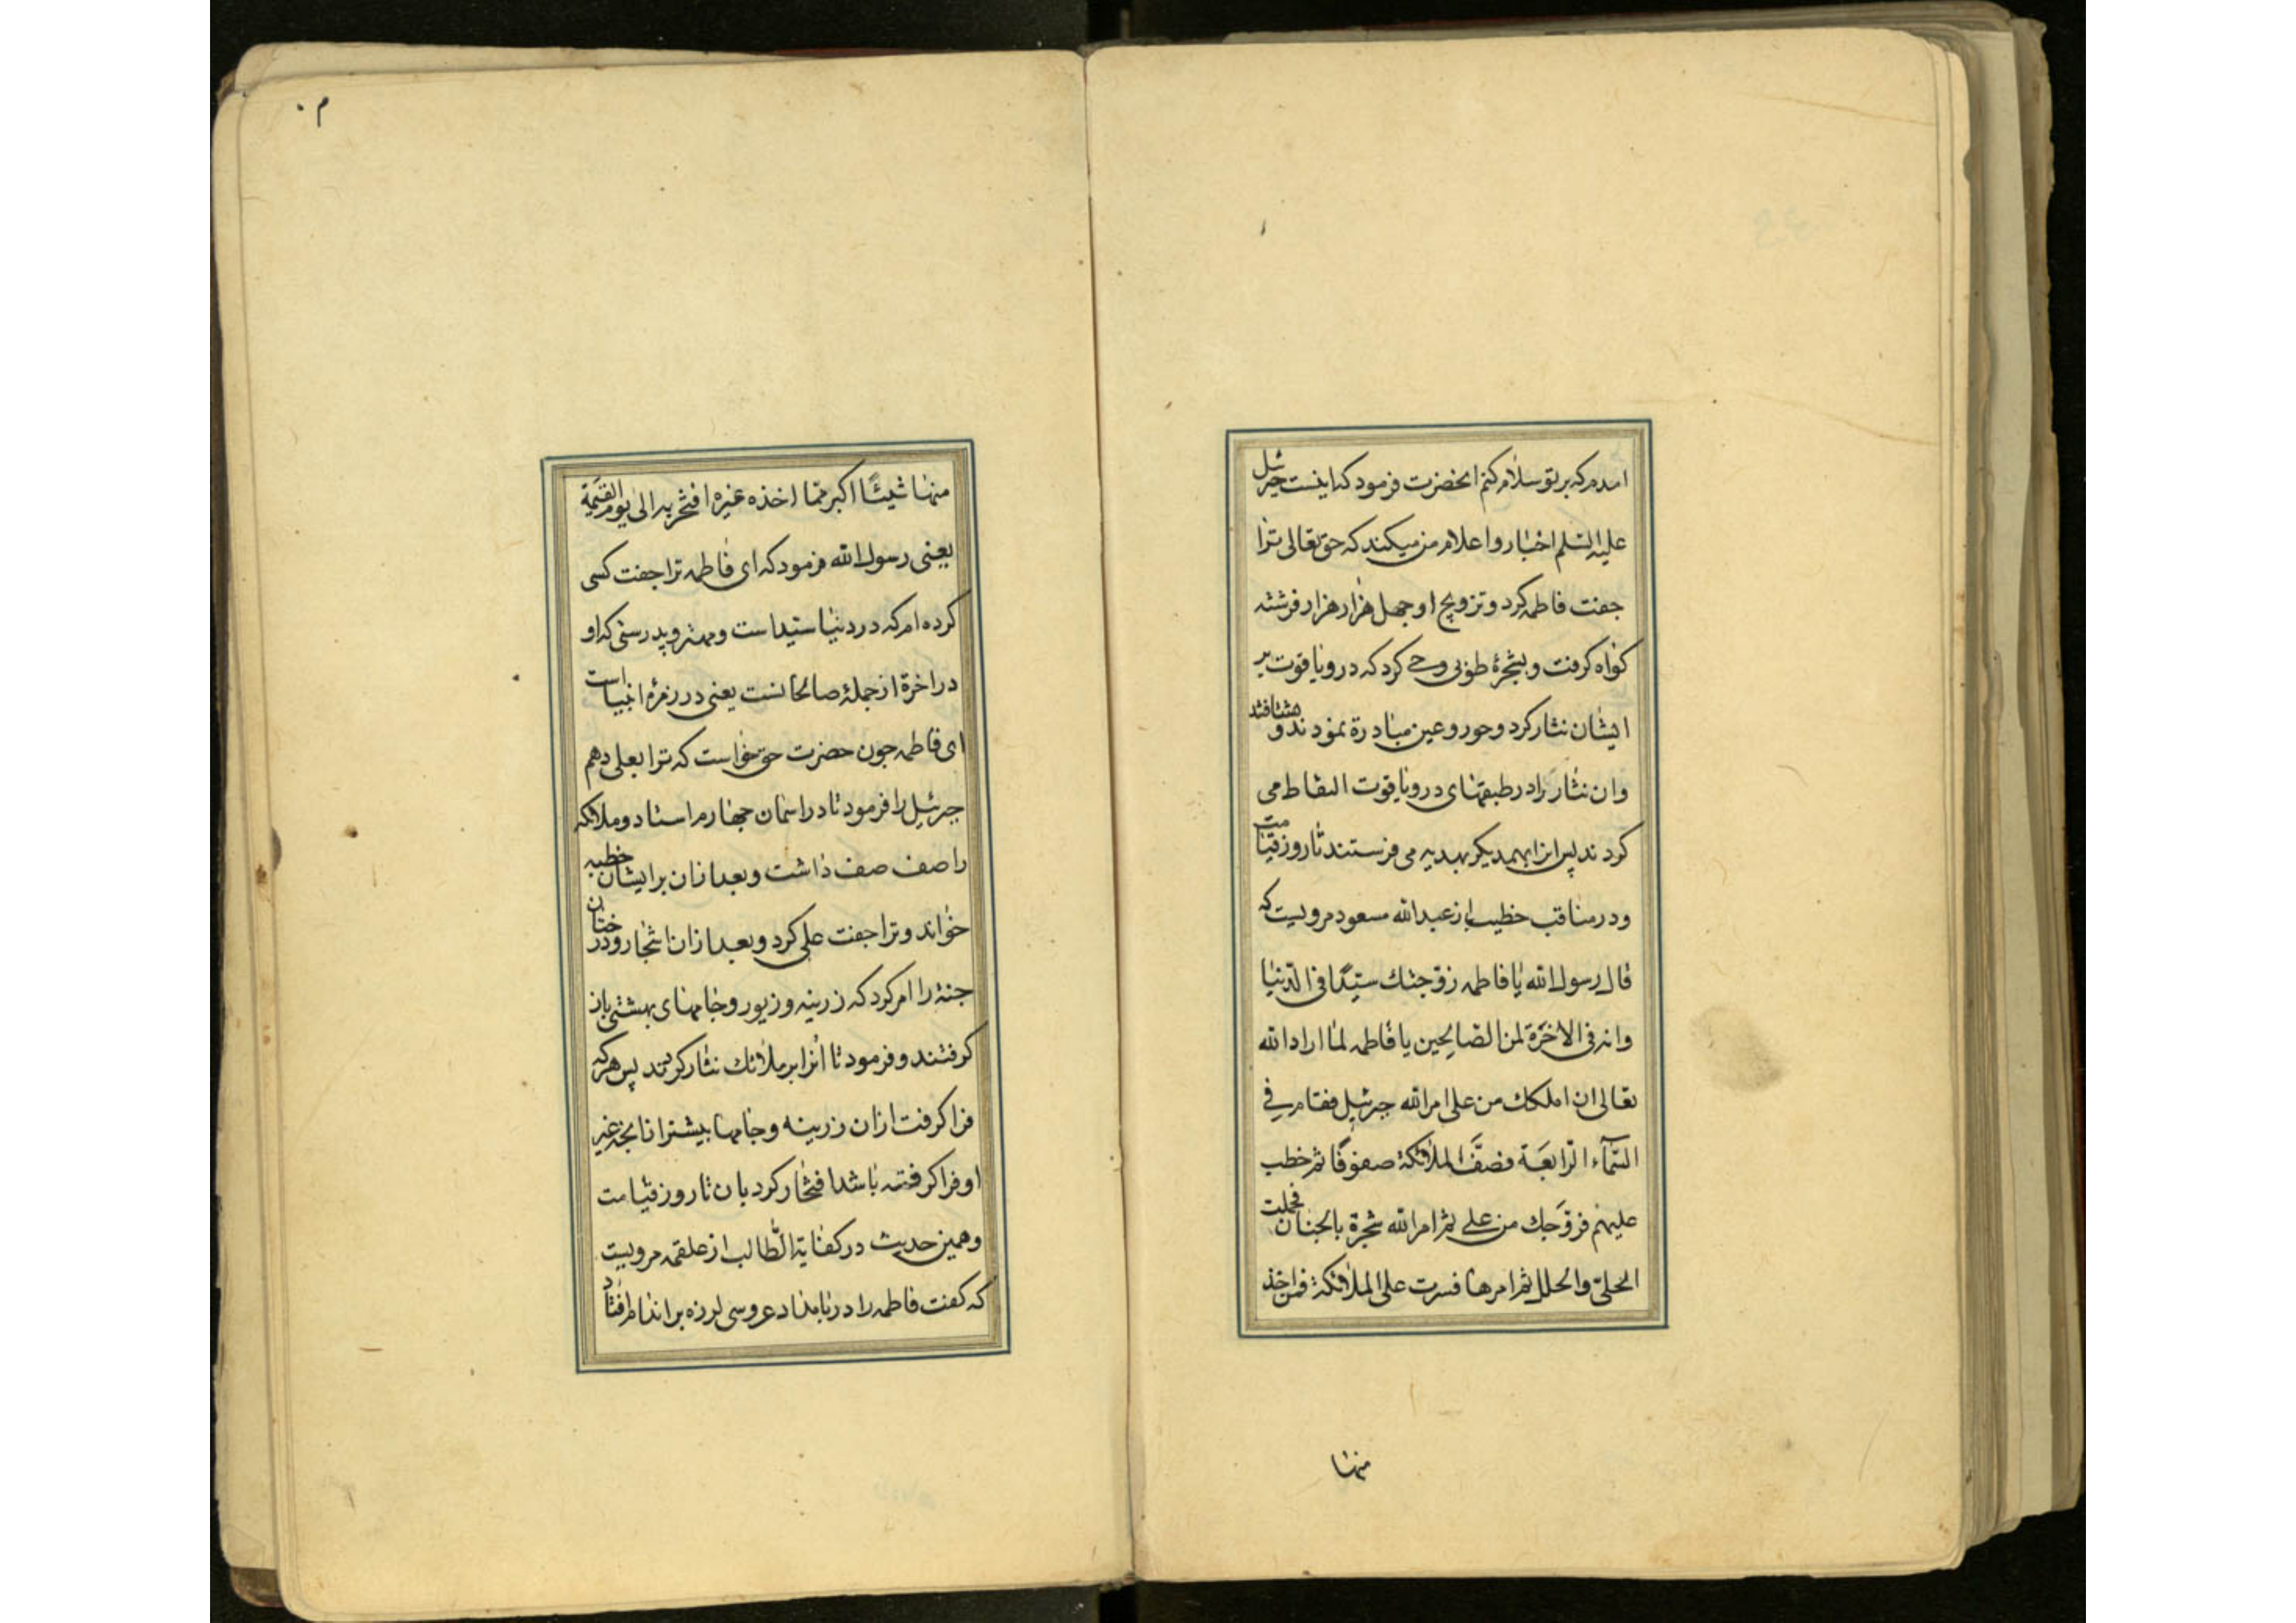 امدم که بر تو سلام کنم انحضرت فرمود که اینست جبرئیل
علیه السلم اخبار و اعلام من میکند که حق تعالی ترا
جفت فاطمه کرد و تزویج او جهل هزار هزار فرشته
کواه کرفت و بشجرهٔ طوبی وحی کرد که در و یاقوت بر
ایشان نثار کرد و حور و عین مبادرة نمودند و مشتافتند
و ان نثار را در طبقهای در و یاقوت التقاط می
کردند پس انرا بهمدیکر بهدیه می فرستند تا روز قیامت
و در مناقب خطیب از عبدالله مسعود مرویست که
قال رسول الله یا فاطمه زوجتك سیّدًا فی الدّنیا
وانه فی الاخرَة لمن الصالحین یا فاطمه لما اراد الله
تعالی ان املکك من علی امر الله جبرئیل فقام فی
السَّمآء الرابعَة فصفَّ الملائکة صفوفًا ثم خطب
علیهم فزوّجك من علی ثم امر الله شجرة بالجنان فحملت
الحلیّ والحلل ثم امرها فسرت علی الملائکة فمن اخذ
منها
۴۰
منها شیئًا اکبر مما اخذه غیره افتخر به الی یوم القیمة
یعنی رسول الله فرمود که ای فاطمه ترا جفت کسی
کرده ام که در دنیا سیّد است و مهتر و بدرستی که او
در اخرة از جملهٔ صالحانست یعنی در زمرهٔ انبیا است
ای فاطمه جون حضرت حق خواست که ترا بعلی دهم
جبرئیل را فرمود تا در اسمان جهارم استاد و ملائکه
را صف صف داشت و بعد ازان بر ایشان خطبه
خواند و ترا جفت علی کرد و بعد ازان اشجار و درختان
جنة را امر کرد که زرینه و زیور و جامهای بهشتی باز
کرفتند و فرمود تا انرا بر ملائك نثار کردند پس هر که
فرا کرفت ازان زرینه و جامها بیشتر از انجه غیر
او فرا کرفته باشد افتخار کرد بان تا روز قیامت
و همین حدیث در کفایة الطّالب از علقمه مرویست
که کفت فاطمه را در بامداد عروسی لرزه بر اندام افتاد